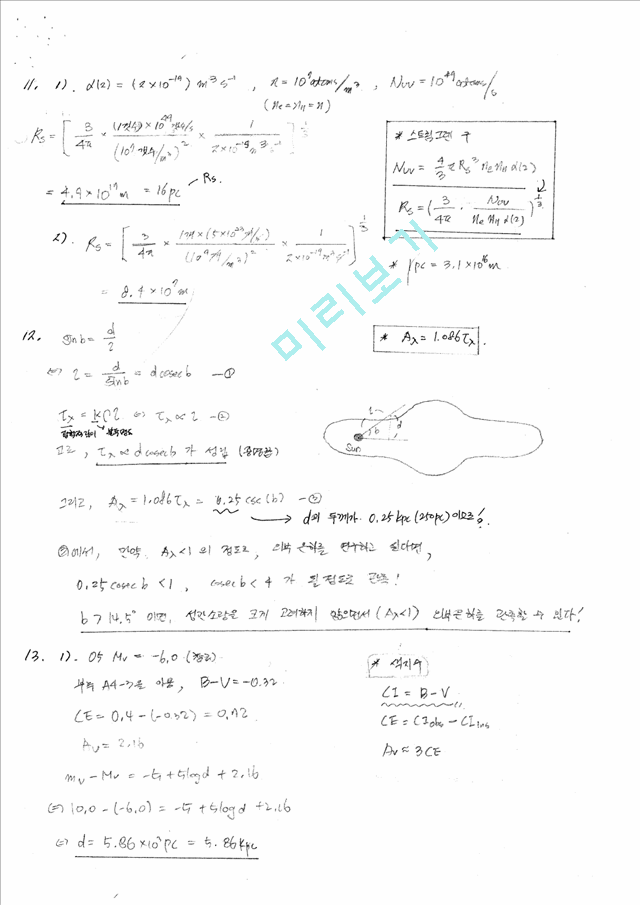 11. 1). α(2) = (2×10⁻¹⁹) m³s⁻¹ , n = 10⁹ atoms/m³ , Nuv = 10⁴⁹ atoms/s
(ne = nH = n)
Rs = [ 3/4π × 10⁴⁹ / (10⁹ )² × 1/2×10⁻¹⁹m³s⁻¹ ]^1/3
= 4.9×10¹⁷m = 16pc
Rs.
* 스트룀그렌 구
Nuv = 4/3 π Rs³ ne nH α(2)
Rs = ( 3/4π · Nuv / ne nH α(2) )^1/3
2). Rs = [ 3/4π × × 1/2×10⁻¹⁹m³s⁻¹ ]^1/3
* 1pc = 3.1×10¹⁶m
= 8.4×10⁷m
12. sin b = d/2
* Aλ = 1.086τλ.
⇔ 2 = d/sin b = d cosec b - ①
τλ = κρ2 ⇔ τλ ∝ 2 - ②
Sun
b
d
그리고, Aλ = 1.086τλ = 0.25 csc(b) - ③
→ d의 두께가 0.25kpc(250pc)이므로!
③에서, 만약 Aλ<1 의 정도로, 외부 은하를 연구하고 싶다면,
0.25 cosec b < 1 , cosec b < 4 가 될 정도로 관측!
b > 14.5° 이면, 성간소광은 크게 고려하지 않으면서 (Aλ<1) 외부은하를 관측할 수 있다!
13. 1). O5 Mv = -6.0
부록 A4-3을 이용, B-V = -0.32
CE = 0.4 - (-0.32) = 0.72
Av = 2.16
mv - Mv = -5 + 5log d + 2.16
⇔ 10.0 - (-6.0) = -5 + 5log d + 2.16
⇔ d = 5.86×10³pc = 5.86kpc
* 색지수
CI = B-V
CE = CIobs - CIins
Av = 3CE
미리보기